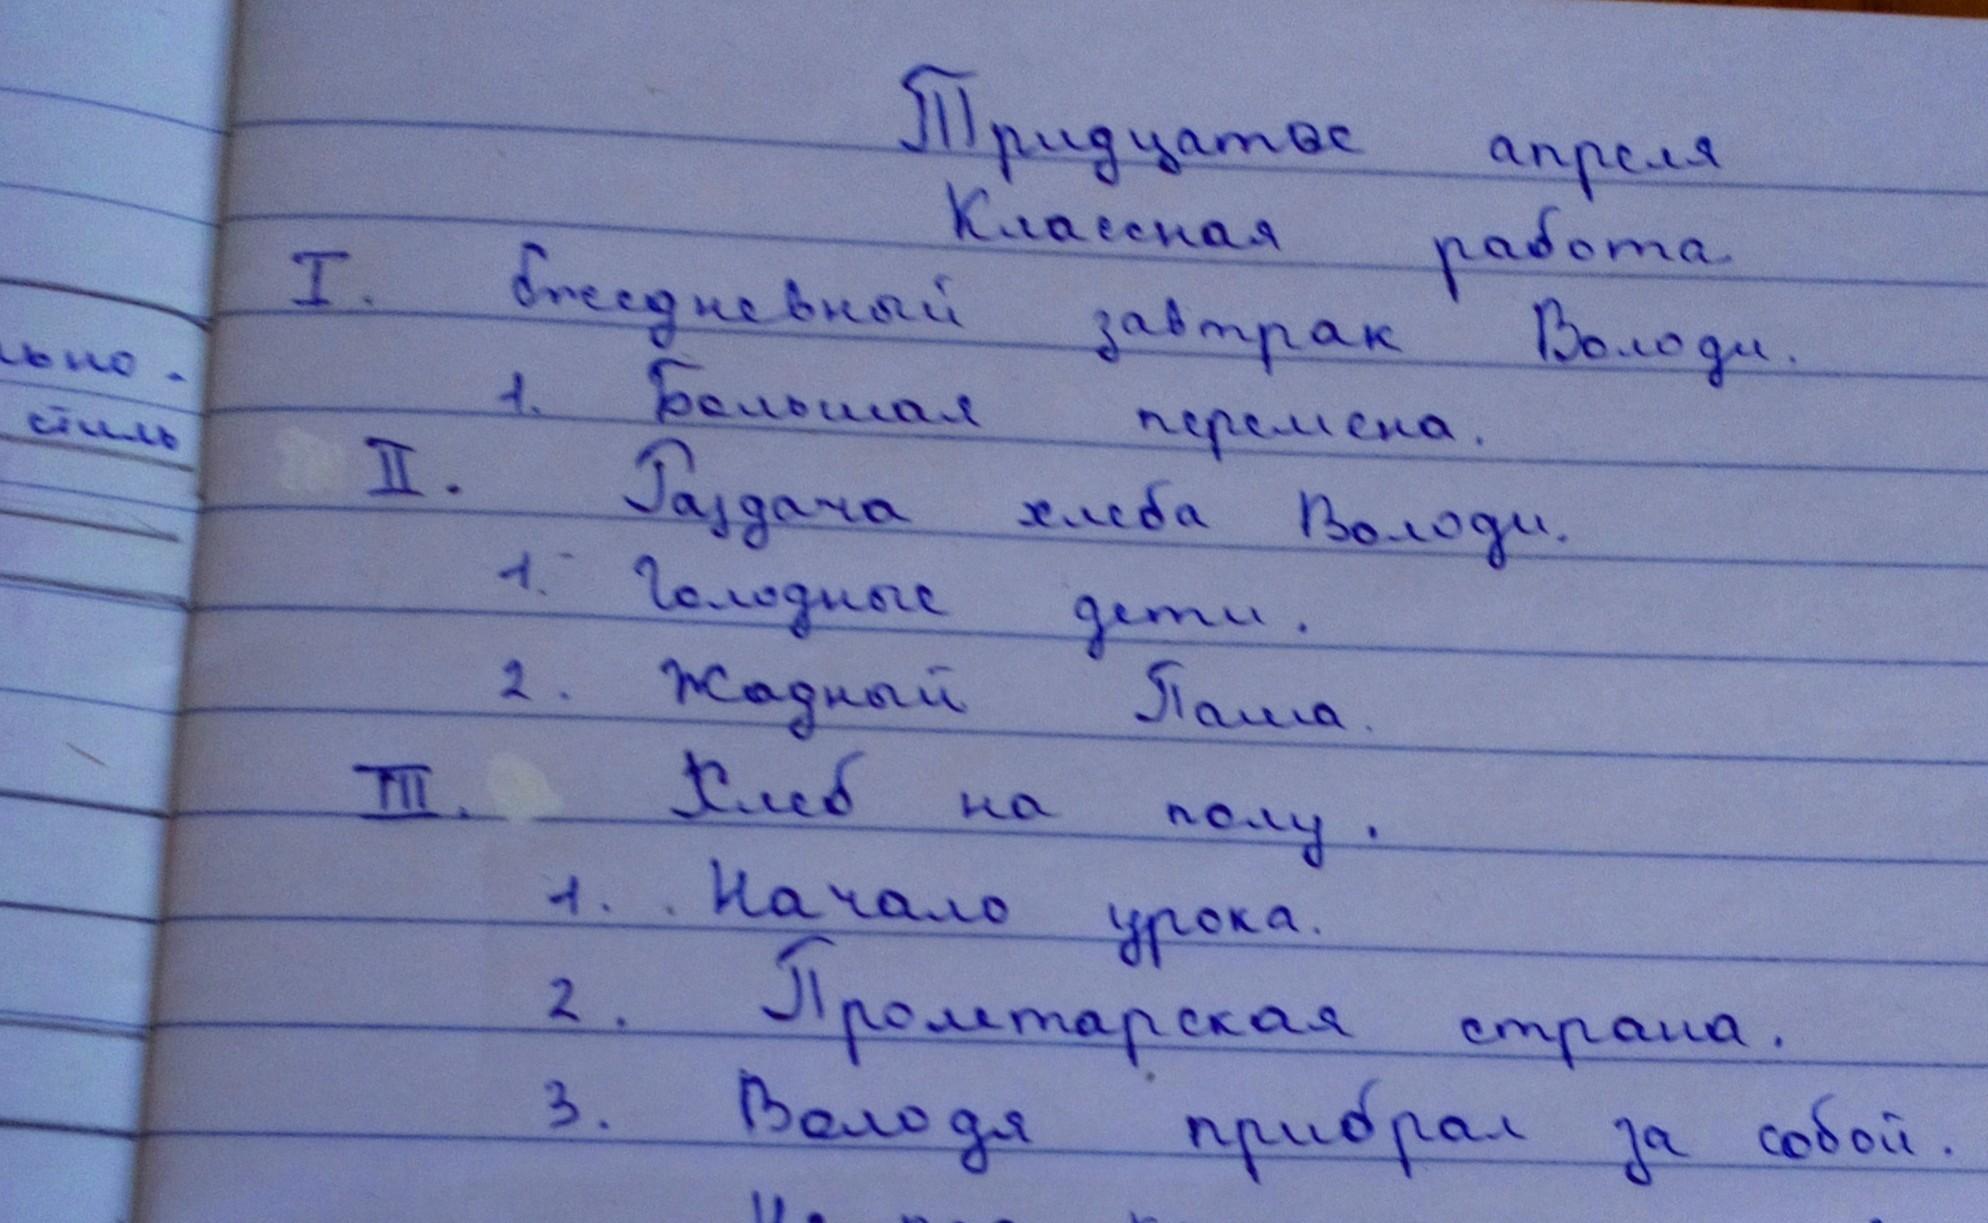 льно.
стиль
Тридцатое апреля
Классная работа.
I. Ежедневный завтрак Володи.
1. Большая перемена.
II. Раздача хлеба Володи.
1. Голодные дети.
2. Жадный Паша.
III. Хлеб на полу.
1. Начало урока.
2. Пролетарская страна.
3. Володя прибрал за собой.